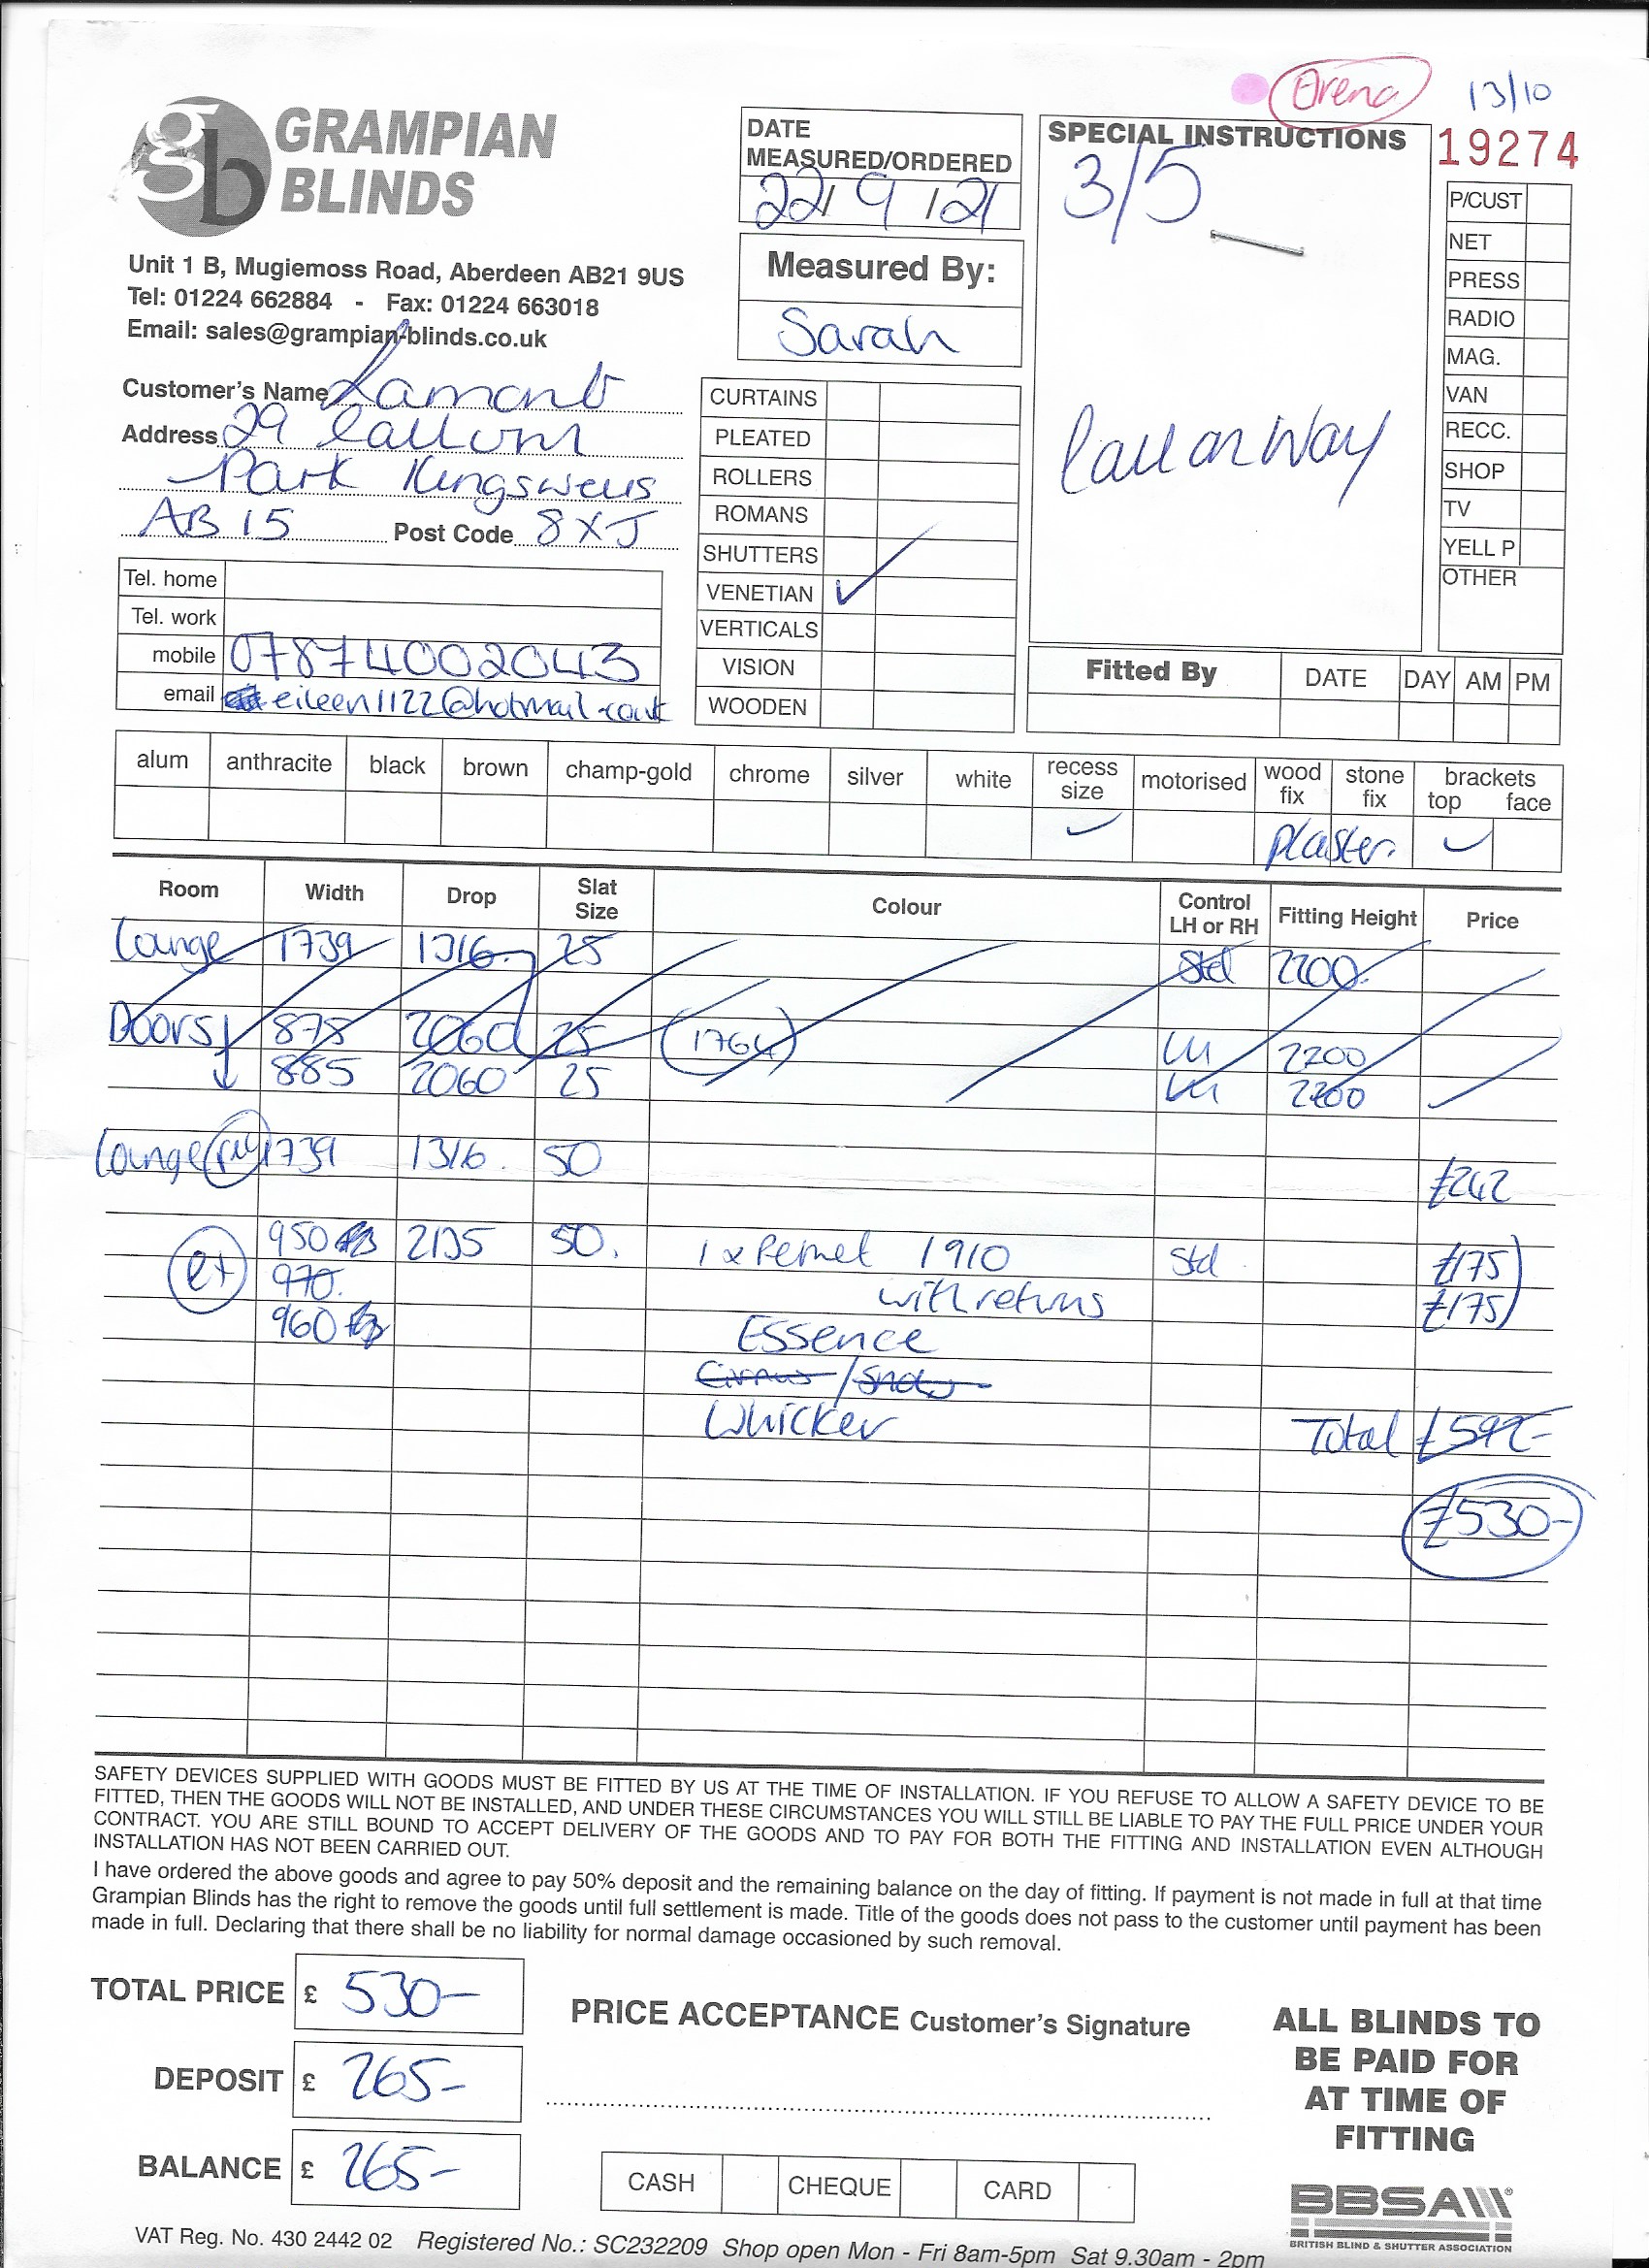 Orena 13/10
GRAMPIAN
BLINDS
Unit 1 B, Mugiemoss Road, Aberdeen AB21 9US
Tel: 01224 662884 - Fax: 01224 663018
Email: sales@grampian-blinds.co.uk
Customer's Name Lamont
Address 29 Callum
Park Kingswells
AB15 Post Code 8XJ
Tel. home
Tel. work
mobile 07874002043
email eileen1122@hotmail.co.uk
DATE
MEASURED/ORDERED
22/ 9 /21
Measured By:
Sarah
CURTAINS
PLEATED
ROLLERS
ROMANS
SHUTTERS
VENETIAN ✓
VERTICALS
VISION
WOODEN
SPECIAL INSTRUCTIONS
3/5
Call on Way
19274
P/CUST
NET
PRESS
RADIO
MAG.
VAN
RECC.
SHOP
TV
YELL P
OTHER
Fitted By DATE DAY AM PM
alum anthracite black brown champ-gold chrome silver white recess size motorised wood fix stone fix brackets top face
✓ plaster. ✓
Room Width Drop Slat Size Colour Control LH or RH Fitting Height Price
Lounge 1739 1316 25 Std 2200
Doors 878 2060 25 (1764) LH 2200
885 2060 25 LH 2200
Lounge 1739 1316. 50
£242
950 2135 50. 1 x Pelmet 1910 Std £175
970. with returns £175
960 Essence
Cirrus / Snow
Whicker Total £592-
£530-
SAFETY DEVICES SUPPLIED WITH GOODS MUST BE FITTED BY US AT THE TIME OF INSTALLATION. IF YOU REFUSE TO ALLOW A SAFETY DEVICE TO BE
FITTED, THEN THE GOODS WILL NOT BE INSTALLED, AND UNDER THESE CIRCUMSTANCES YOU WILL STILL BE LIABLE TO PAY THE FULL PRICE UNDER YOUR
CONTRACT. YOU ARE STILL BOUND TO ACCEPT DELIVERY OF THE GOODS AND TO PAY FOR BOTH THE FITTING AND INSTALLATION EVEN ALTHOUGH
INSTALLATION HAS NOT BEEN CARRIED OUT.
I have ordered the above goods and agree to pay 50% deposit and the remaining balance on the day of fitting. If payment is not made in full at that time
Grampian Blinds has the right to remove the goods until full settlement is made. Title of the goods does not pass to the customer until payment has been
made in full. Declaring that there shall be no liability for normal damage occasioned by such removal.
TOTAL PRICE £ 530-
DEPOSIT £ 265-
BALANCE £ 265-
PRICE ACCEPTANCE Customer's Signature
CASH CHEQUE CARD
ALL BLINDS TO
BE PAID FOR
AT TIME OF
FITTING
BBSA
BRITISH BLIND & SHUTTER ASSOCIATION
VAT Reg. No. 430 2442 02 Registered No.: SC232209 Shop open Mon - Fri 8am-5pm Sat 9.30am - 2pm